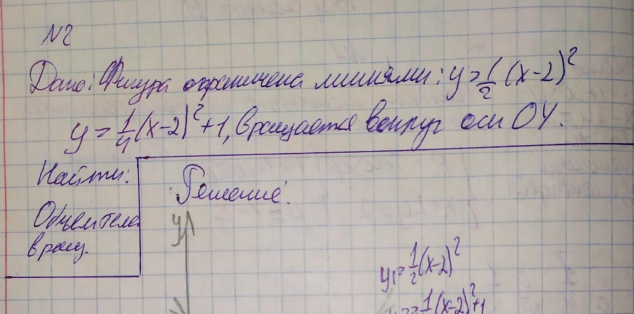 N2
Дано: Фигура ограничена линиями: y=1/2(x-2)²
y=1/4(x-2)²+1, вращается вокруг оси ОУ.
Найти:
Объем тела
вращ.
Решение.
y
y₁=1/2(x-2)²
1/4(x-2)²+1